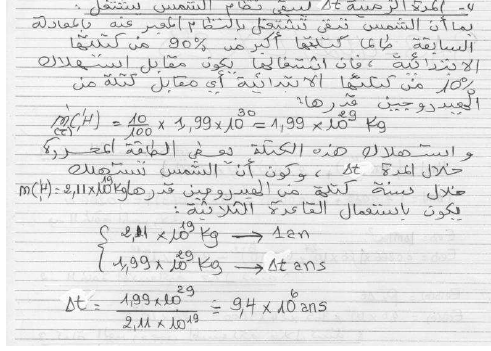 4- المدة الزمنية Δt ليبقى نظام الشمس ستشتغل:
بما أن الشمس تبقى تشتغل بالنظام المعبر عنه بالمعادلة
السابقة طالما كتلتها أكبر من 90% من كتلتها
الابتدائية، فإن اشتغالها يكون مقابل استهلاك
10% من كتلتها الابتدائية أي مقابل كتلة من
الهيدروجين قدرها:
m(¹₁H) = 10/100 × 1,99×10³⁰ = 1,99×10²⁹ Kg
واستهلاك هذه الكتلة يعطي الطاقة المحررة
خلال المدة Δt، وكون أن الشمس تستهلك
خلال سنة كتلة من الهيدروجين قدرها m(¹₁H) = 2,11×10¹⁹ Kg
يكون باستعمال القاعدة الثلاثية:
{ 2,11×10¹⁹ Kg → 1 an
{ 1,99×10²⁹ Kg → Δt ans
Δt = 1,99×10²⁹ / 2,11×10¹⁹ = 9,4×10⁶ ans